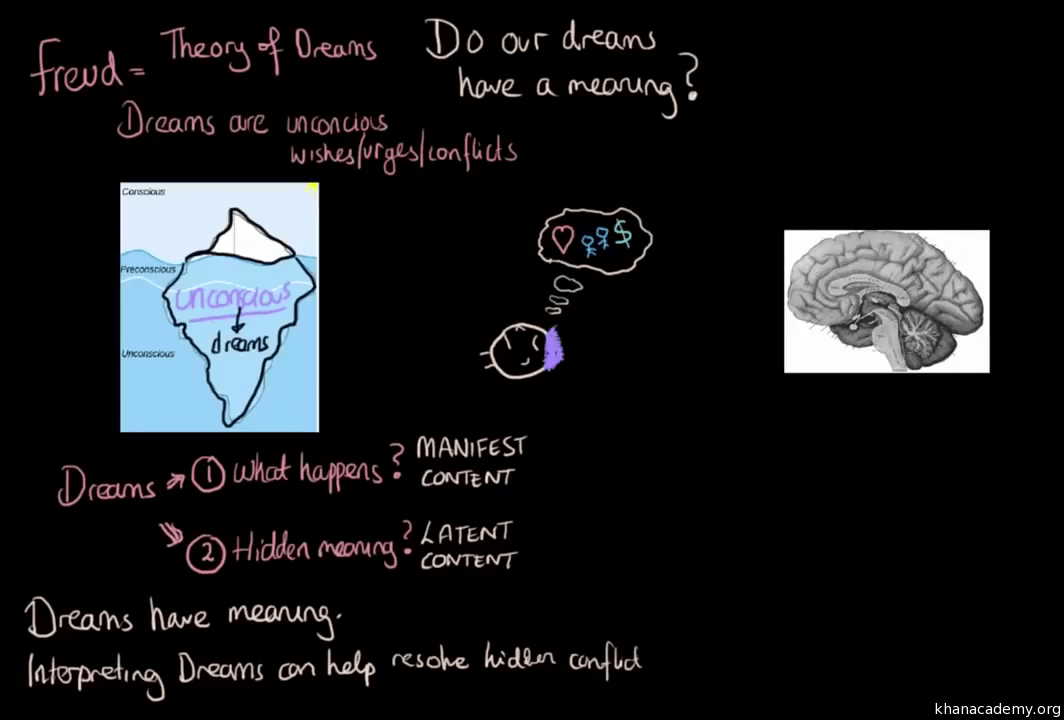 Freud = Theory of Dreams
Do our dreams
have a meaning?
Dreams are unconcious
wishes/urges/conflicts
Conscious
Preconscious
unconscious
dreams
Unconscious
$
Dreams → 1 What happens? MANIFEST
CONTENT
2 Hidden meaning? LATENT
CONTENT
Dreams have meaning.
Interpreting Dreams can help resolve hidden conflict
khanacademy.org